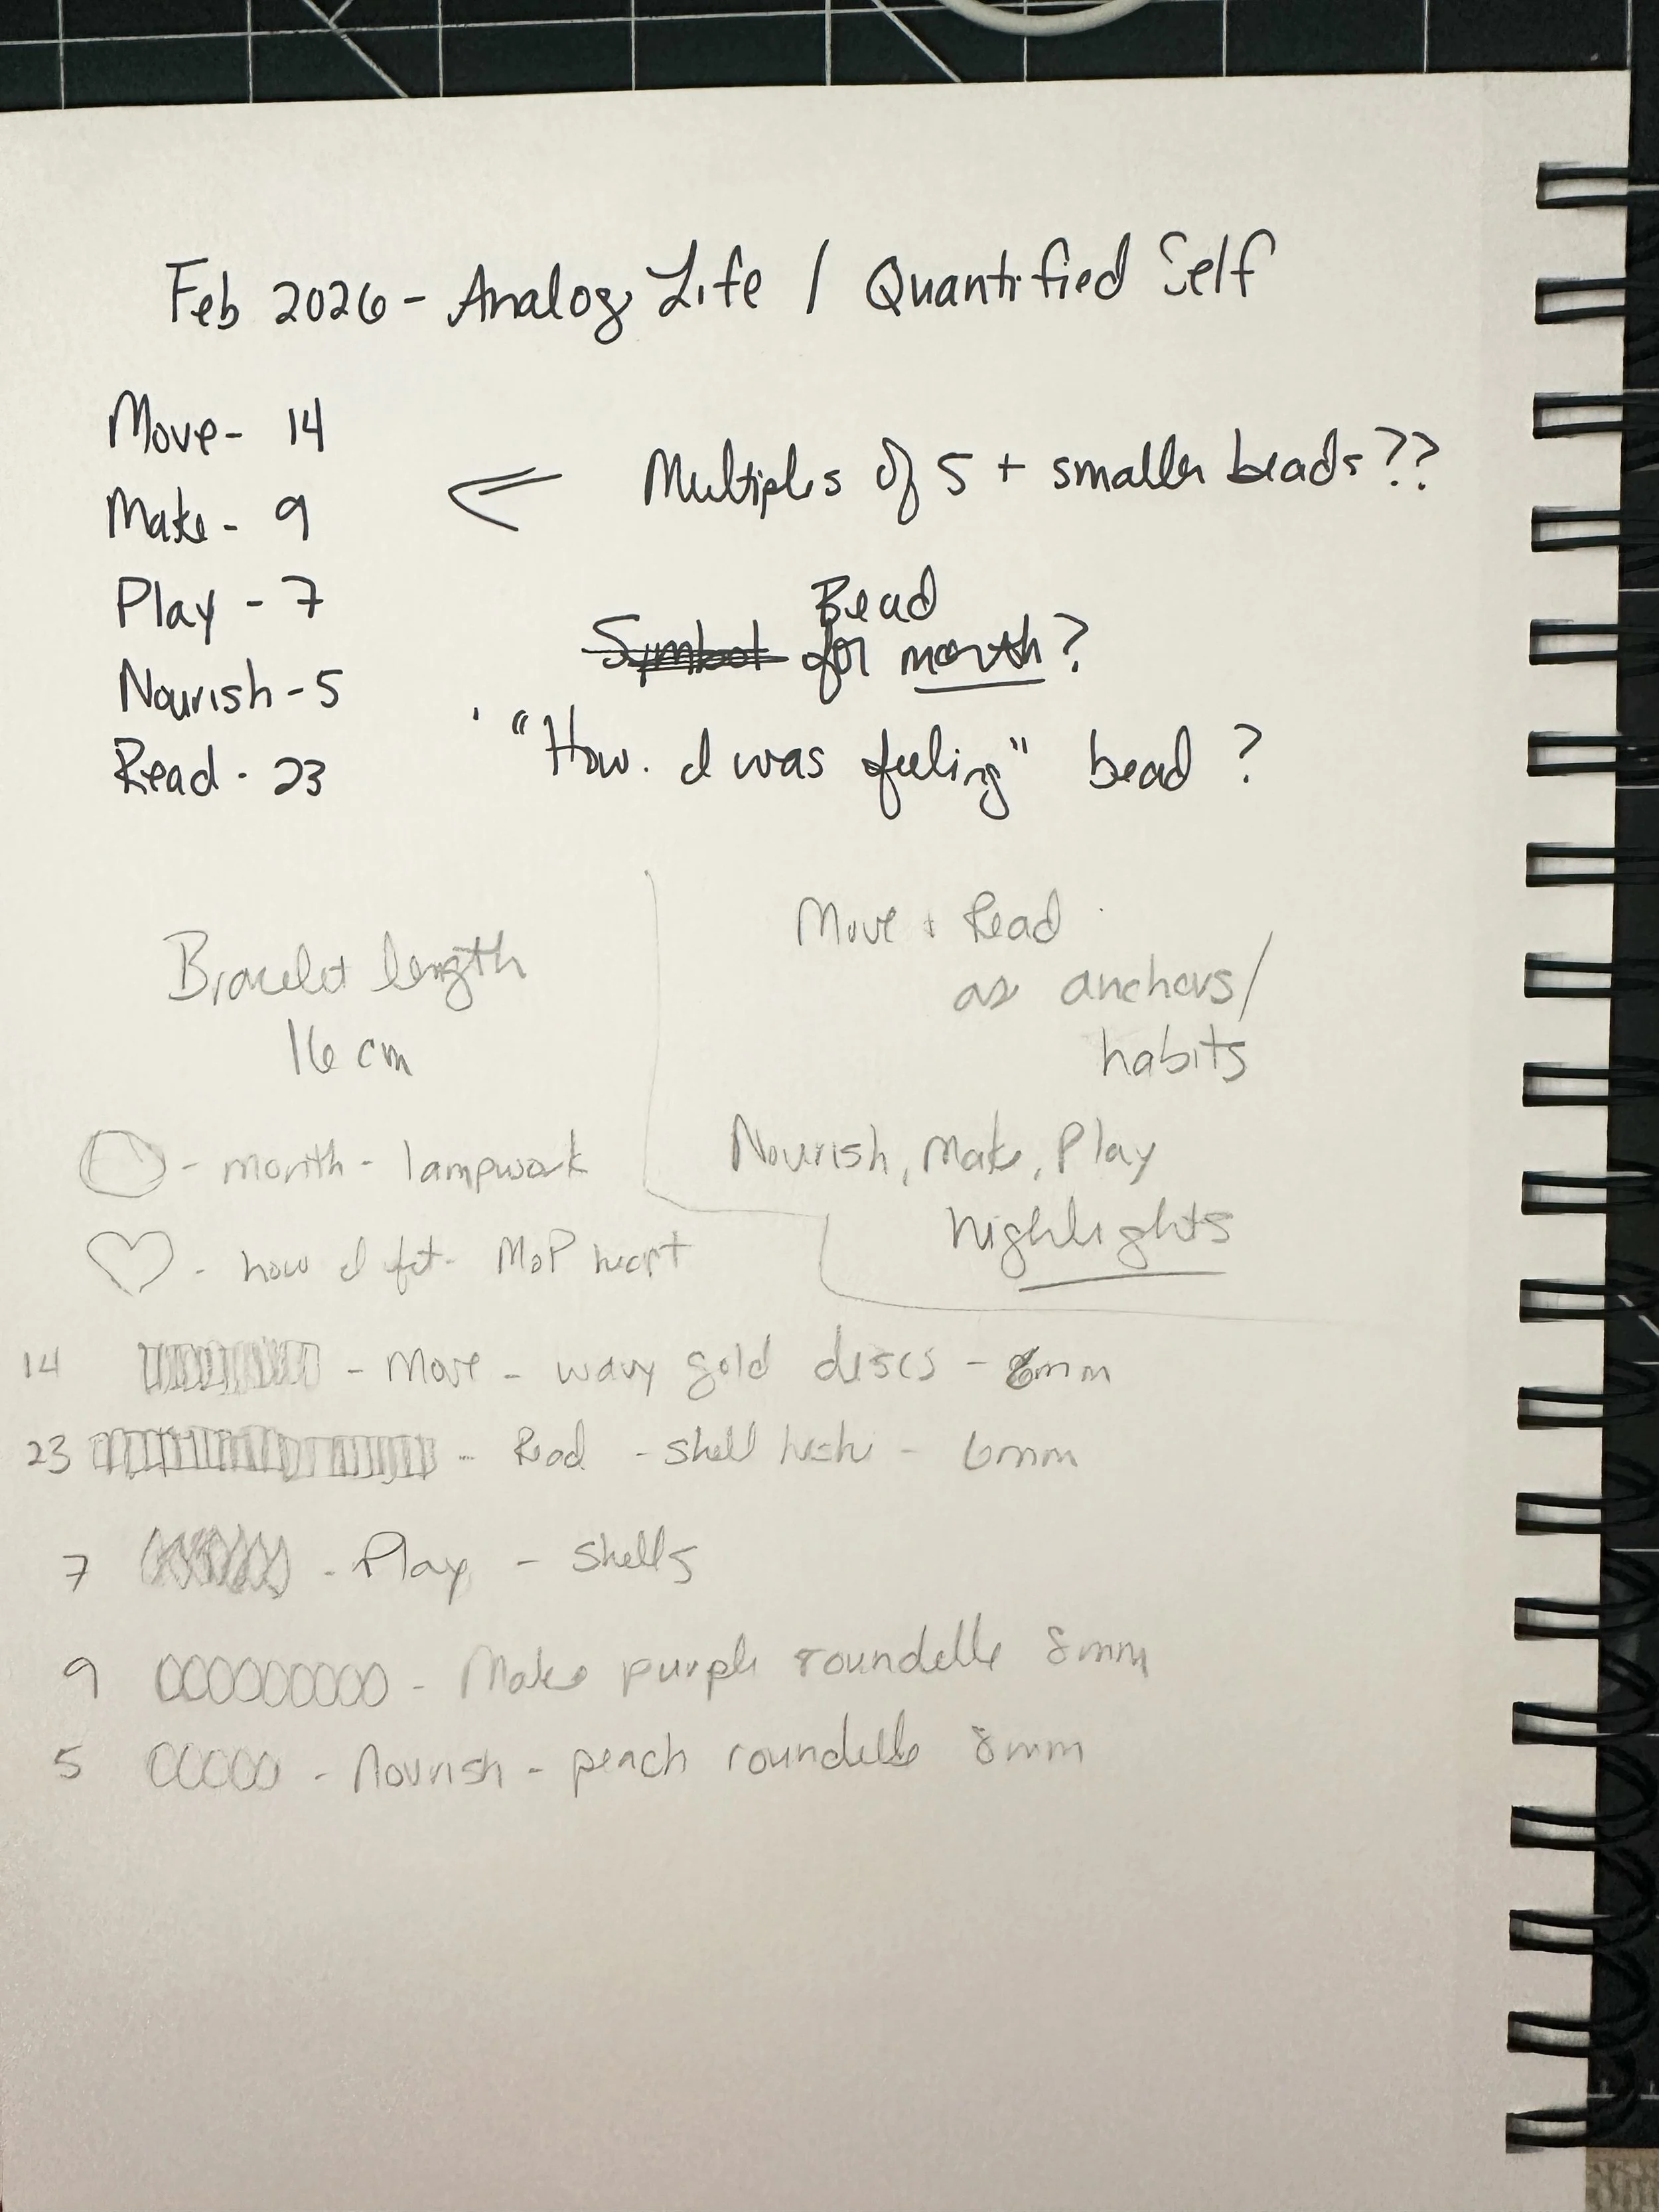 Feb 2026 - Analog Life / Quantified Self
Move - 14
Make - 9
Play - 7
Nourish - 5
Read - 23
Multiples of 5 + smaller beads??
Bead
Symbol for month?
"How I was feeling" bead?
Bracelet length
16 cm
Move + Read
as anchors/
habits
Nourish, Make, Play
highlights
- month - lampwork
- how I felt - MoP heart
14 - Move - wavy gold discs - 6mm
23 - Read - shell heishi - 6mm
7 - Play - shells
9 - Make purple roundelle 8mm
5 - Nourish - peach roundelle 8mm